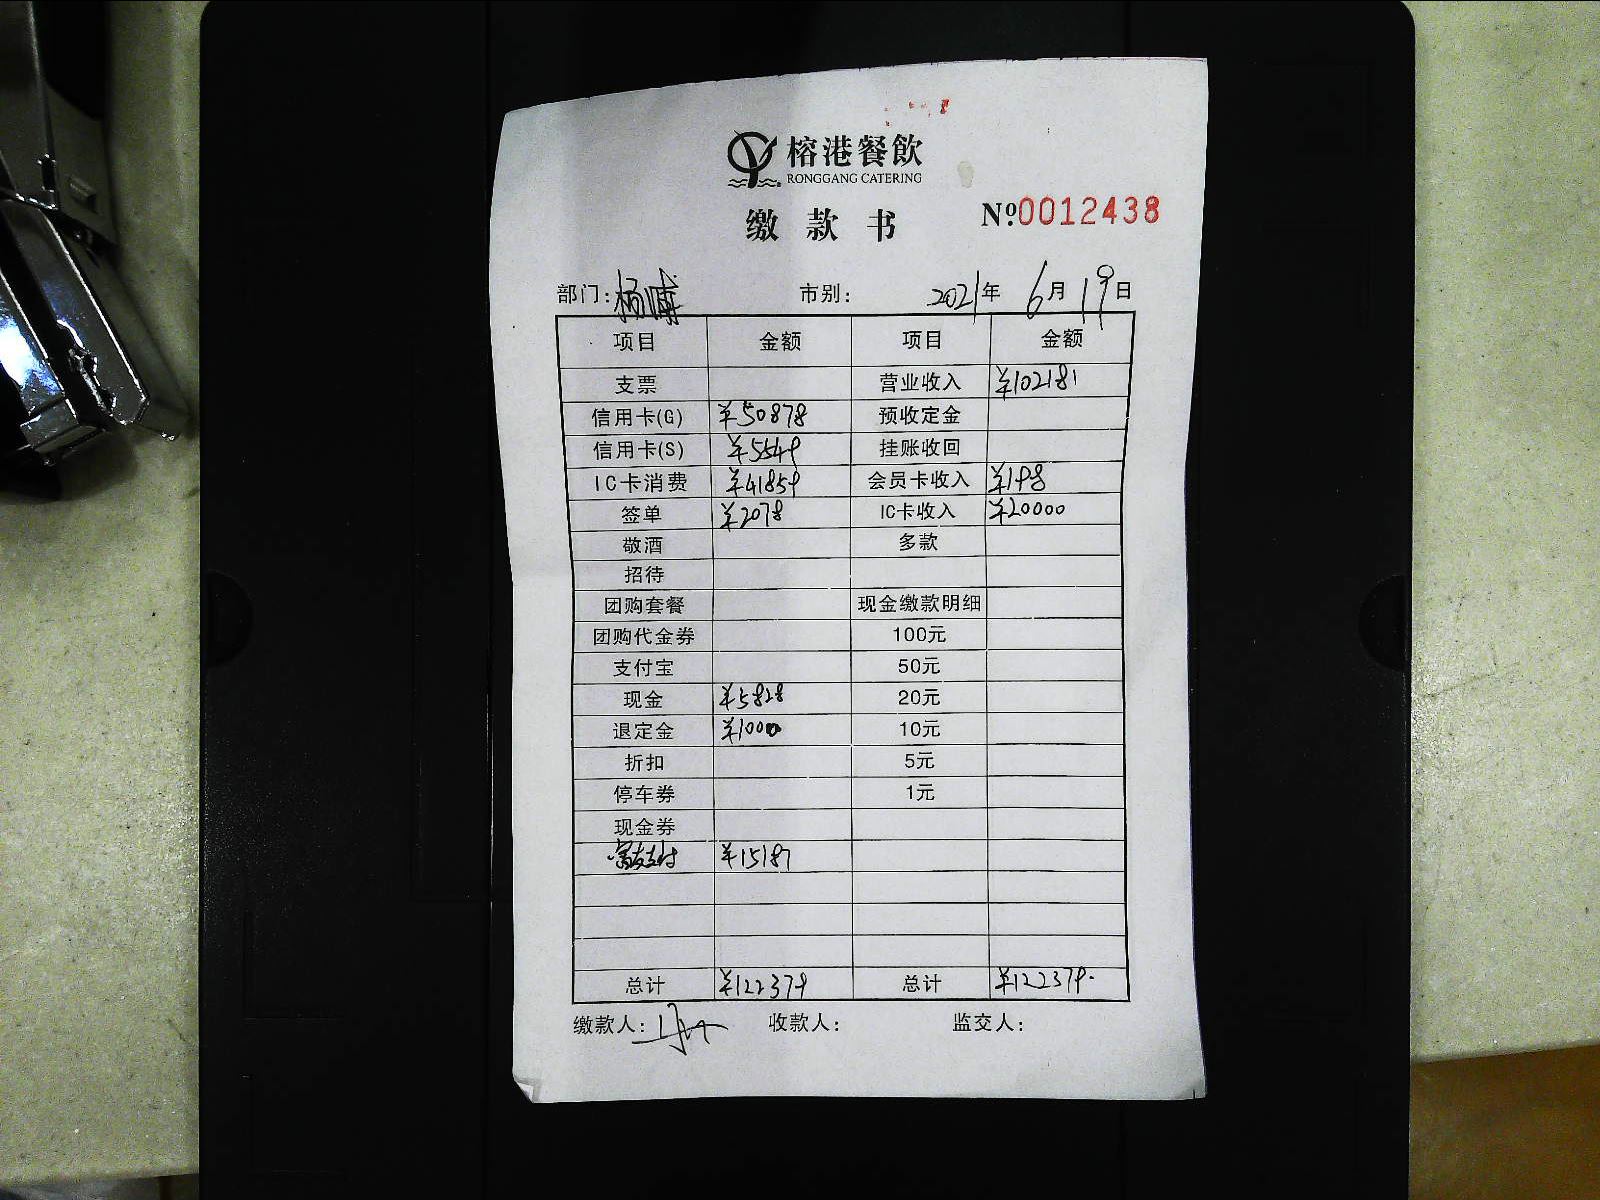 榕港餐飲
RONGGANG CATERING
缴款书 №0012438
部门：杨浦 市别： 2021年 6月 19日
项目 金额 项目 金额
支票 营业收入 ¥102181
信用卡(G) ¥50878 预收定金
信用卡(S) ¥5549 挂账收回
IC卡消费 ¥41859 会员卡收入 ¥198
签单 ¥2078 IC卡收入 ¥20000
敬酒 多款
招待
团购套餐 现金缴款明细
团购代金券 100元
支付宝 50元
现金 ¥5828 20元
退定金 ¥1000 10元
折扣 5元
停车券 1元
现金券
富友支付 ¥15187
总计 ¥122379 总计 ¥122379
缴款人： 收款人： 监交人：